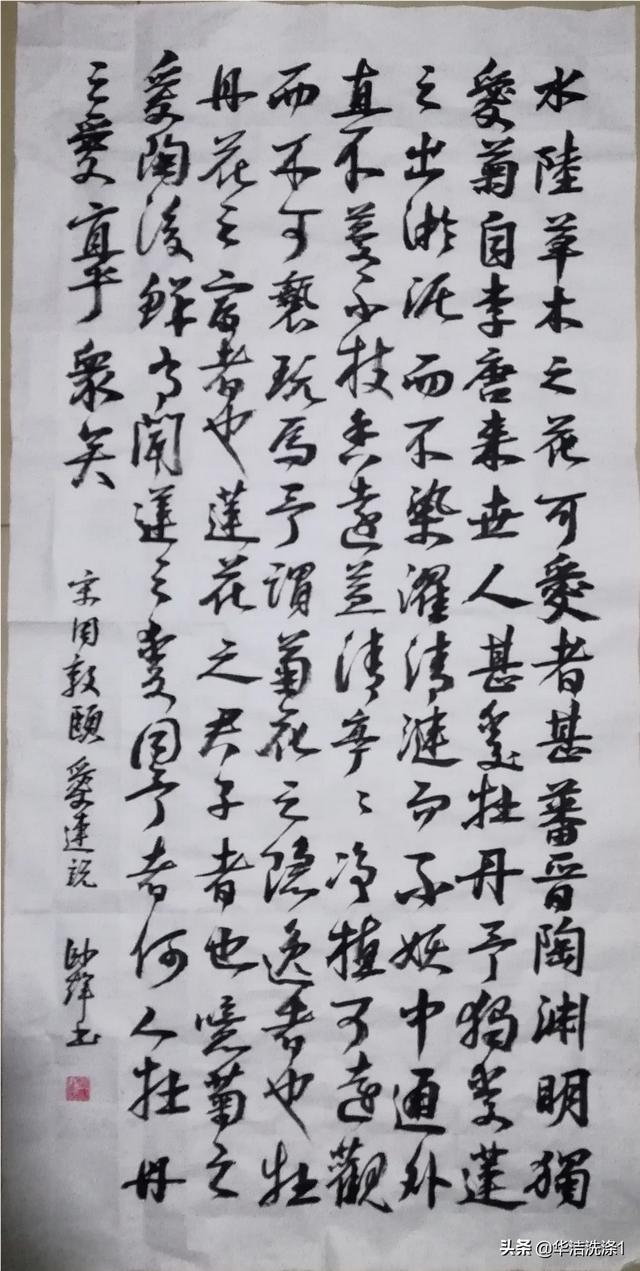 水陸草木之花可愛者甚蕃晋陶渊明獨
愛菊自李唐来世人甚愛牡丹予獨愛蓮
之出淤泥而不染濯清漣而不妖中通外
直不蔓不枝香遠益清亭〻净植可遠觀
而不可褻玩焉予謂菊花之隐逸者也牡
丹花之富者也蓮花之君子者也噫菊之
愛陶後鮮有聞蓮之愛同予者何人牡丹
之愛宜乎衆矣
宋周敦頤愛連説 书
头条 @华洁洗涤1